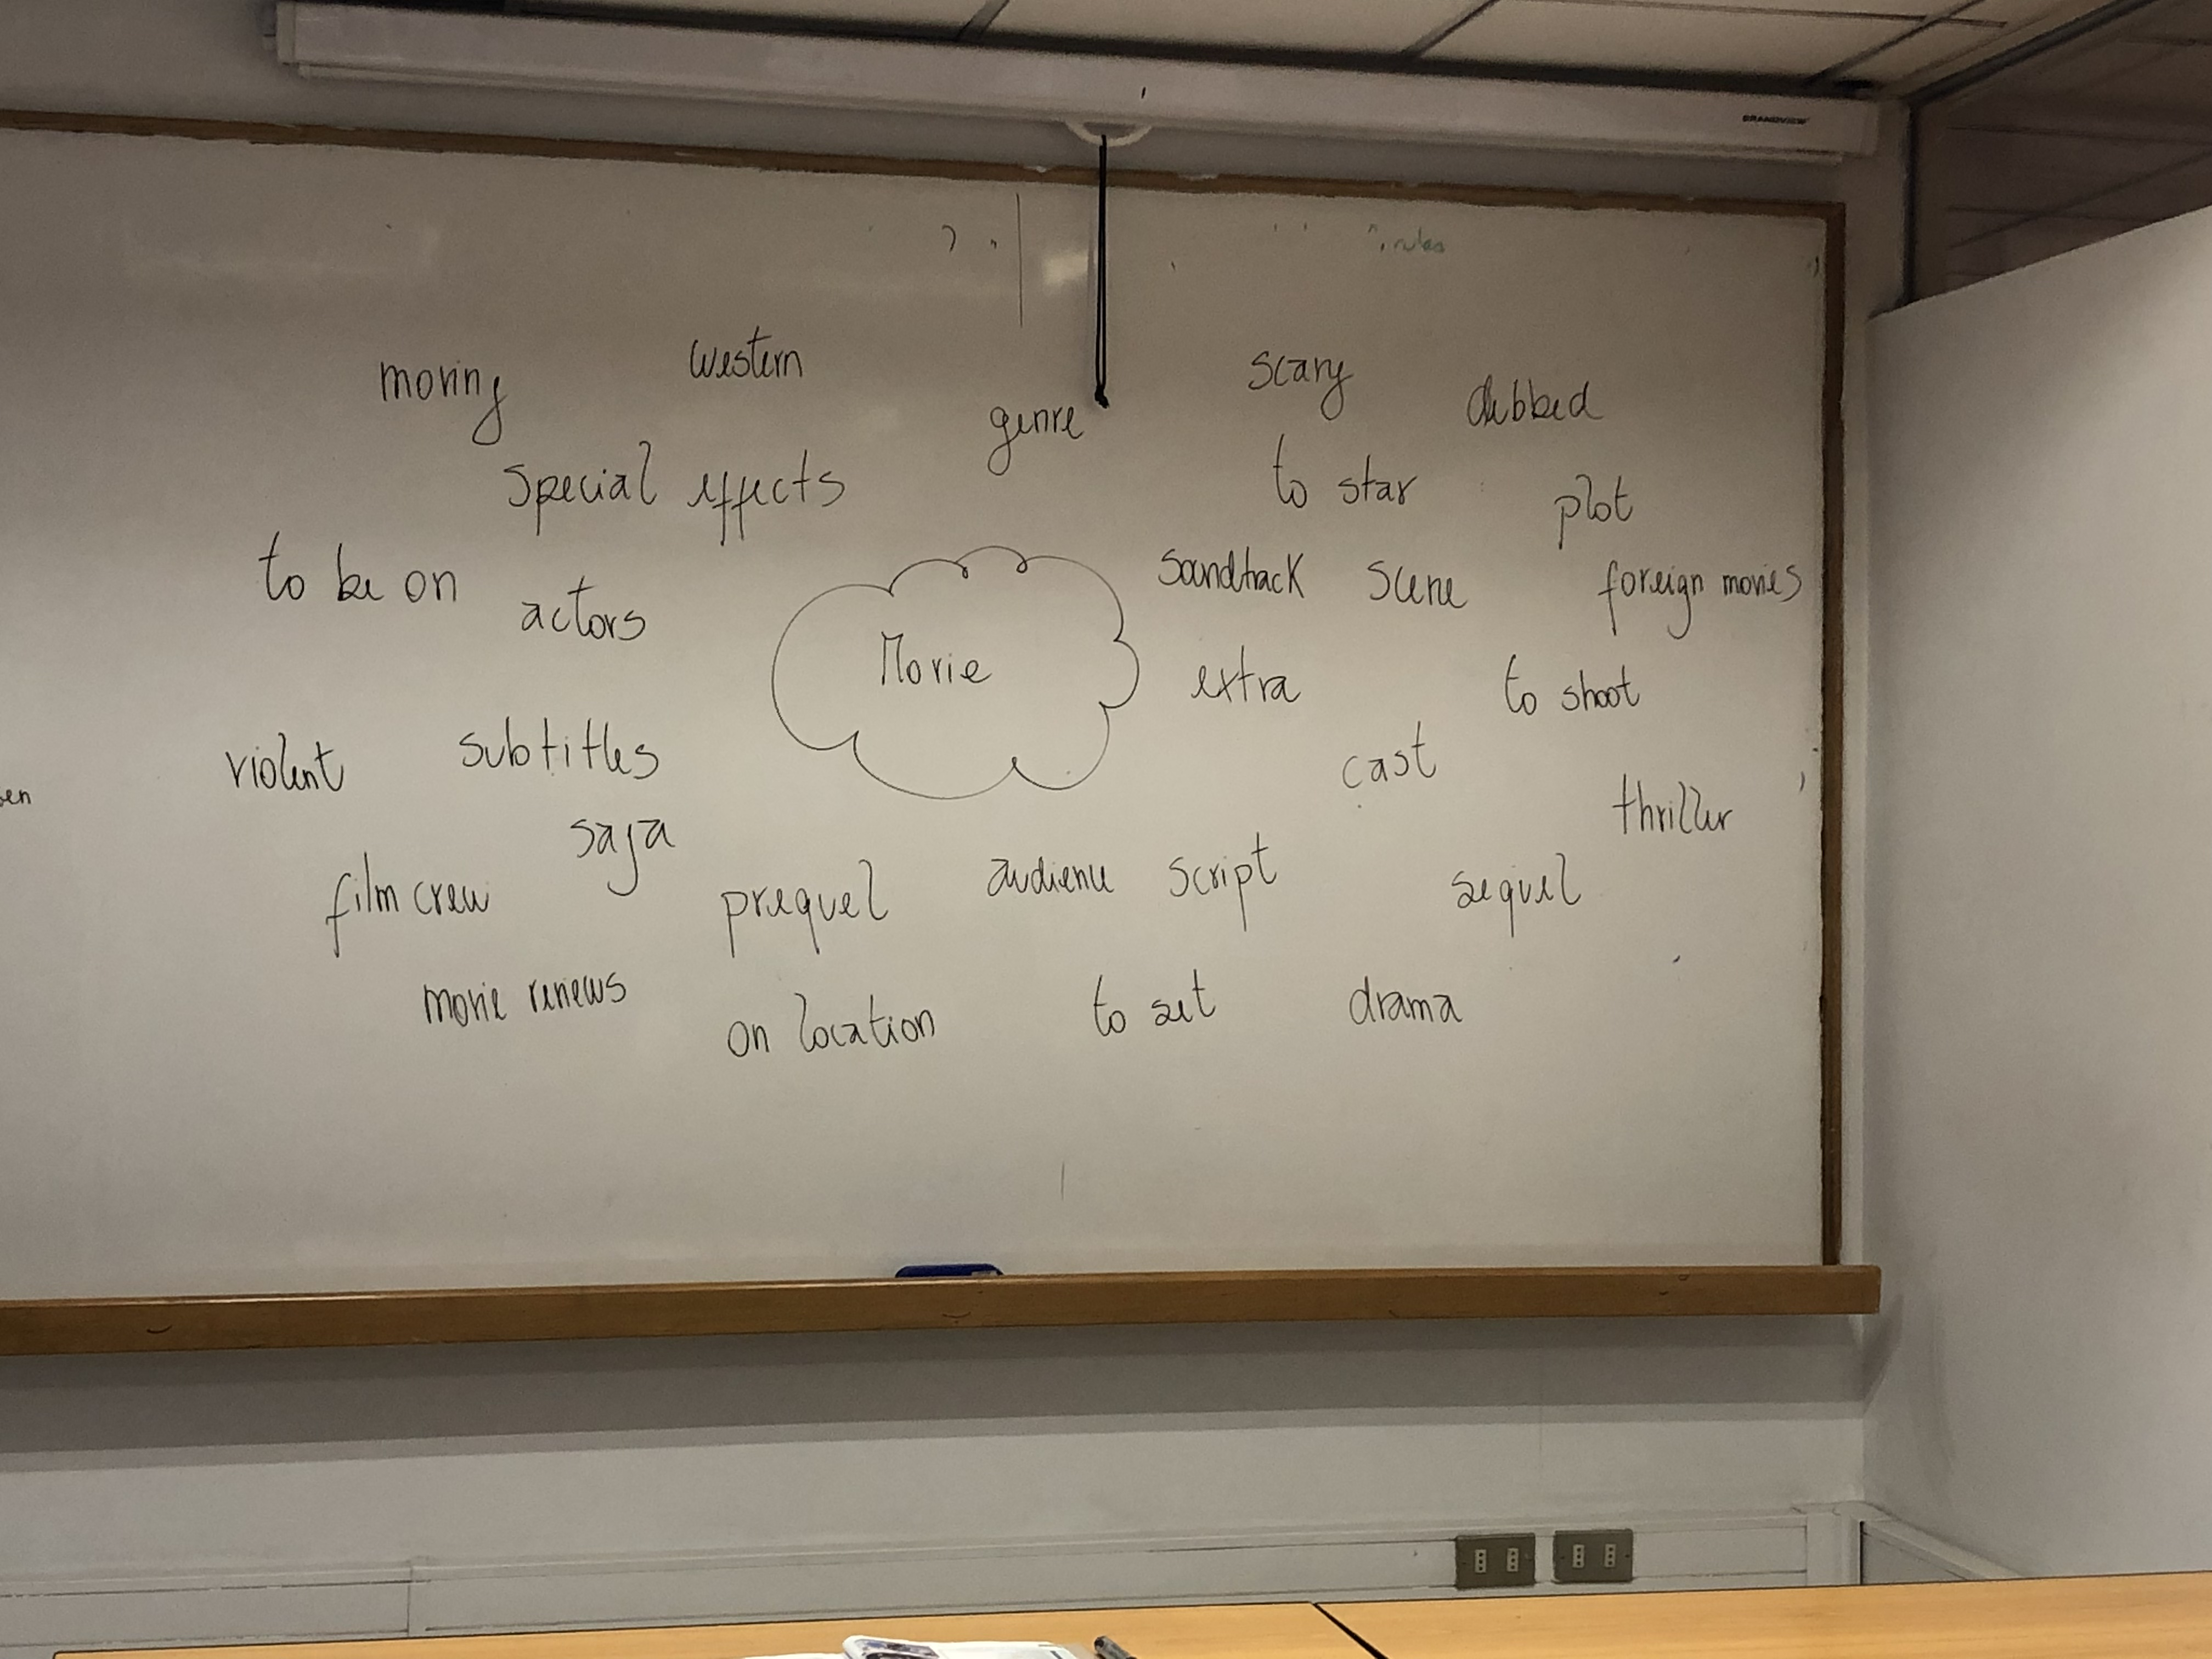 GRANDVIEW
rules
moving
western
scary
genre
dubbed
special effects
to star
plot
to be on
actors
soundtrack
scene
foreign movies
Movie
extra
to shoot
violent
subtitles
cast
thriller
saga
film crew
prequel
audience
script
sequel
movie reviews
on location
to set
drama